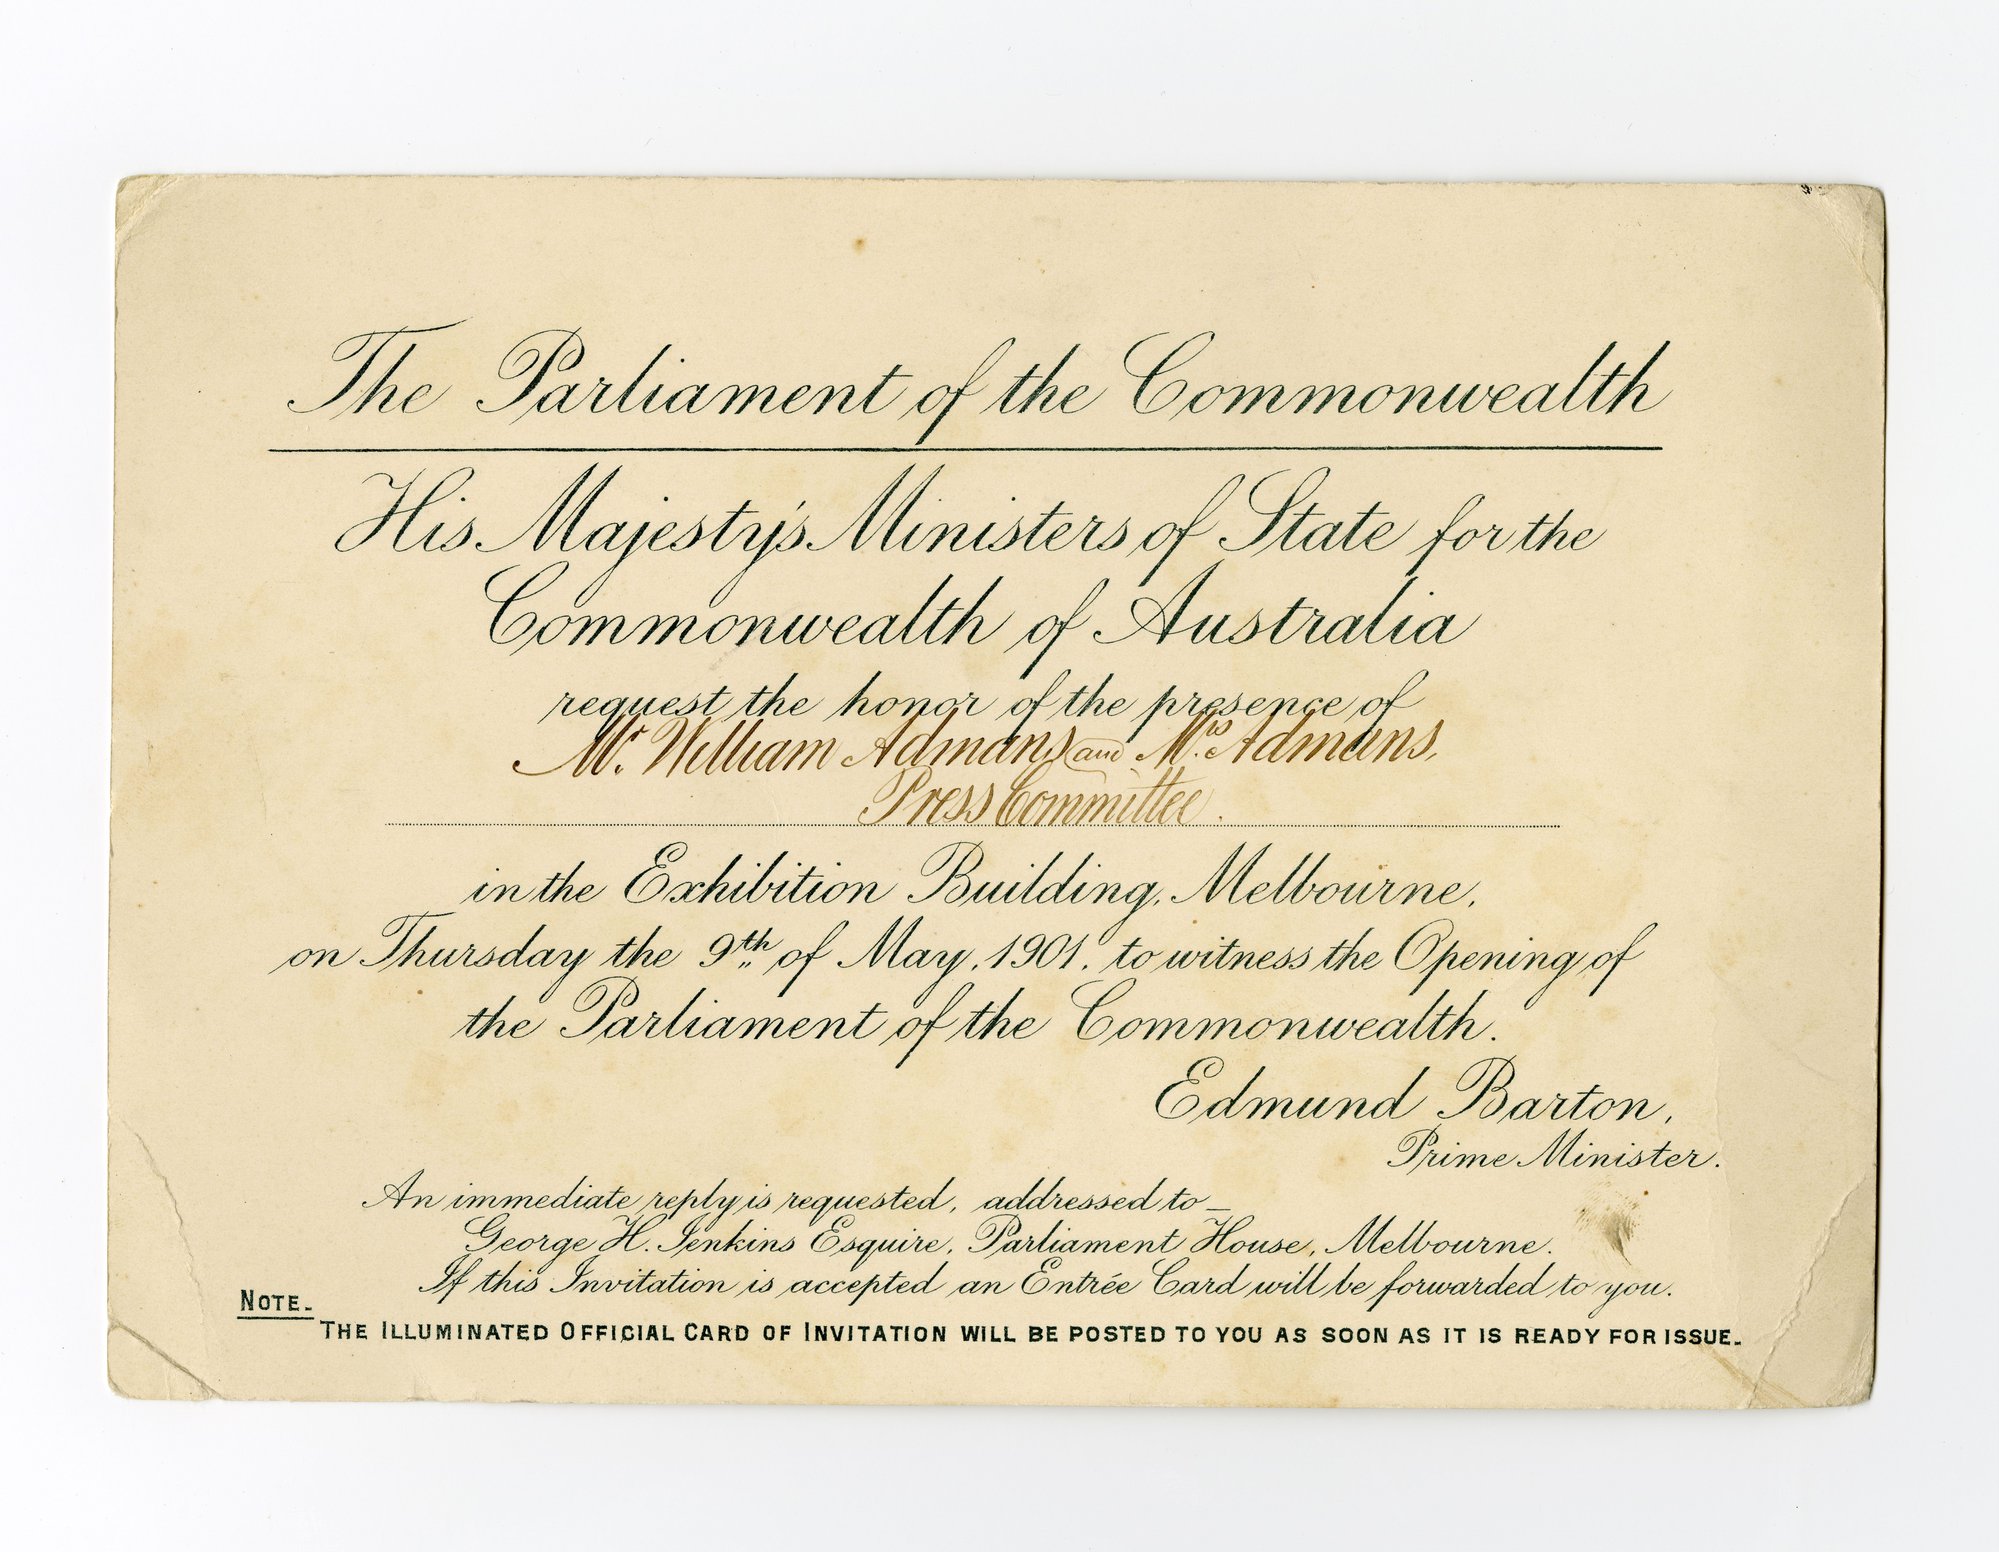 The Parliament of the Commonwealth
His Majesty's Ministers of State for the
Commonwealth of Australia
request the honor of the presence of
Mr. William Admans and Mrs. Admans,
Press Committee.
in the Exhibition Building, Melbourne,
on Thursday the 9th of May, 1901, to witness the Opening of
the Parliament of the Commonwealth.
Edmund Barton,
Prime Minister.
An immediate reply is requested, addressed to _
George H. Jenkins Esquire, Parliament House, Melbourne.
If this Invitation is accepted an Entrée Card will be forwarded to you.
NOTE.-
THE ILLUMINATED OFFICIAL CARD OF INVITATION WILL BE POSTED TO YOU AS SOON AS IT IS READY FOR ISSUE.-